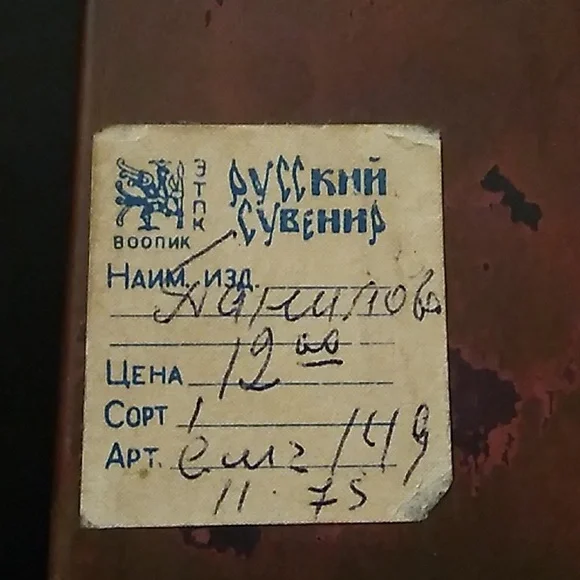 ЭТПК
РУССКИЙ
СУВЕНИР
ВООПИК
НАИМ. ИЗД.
Данилова
ЦЕНА 12 00
СОРТ 1
АРТ. 149
11.75